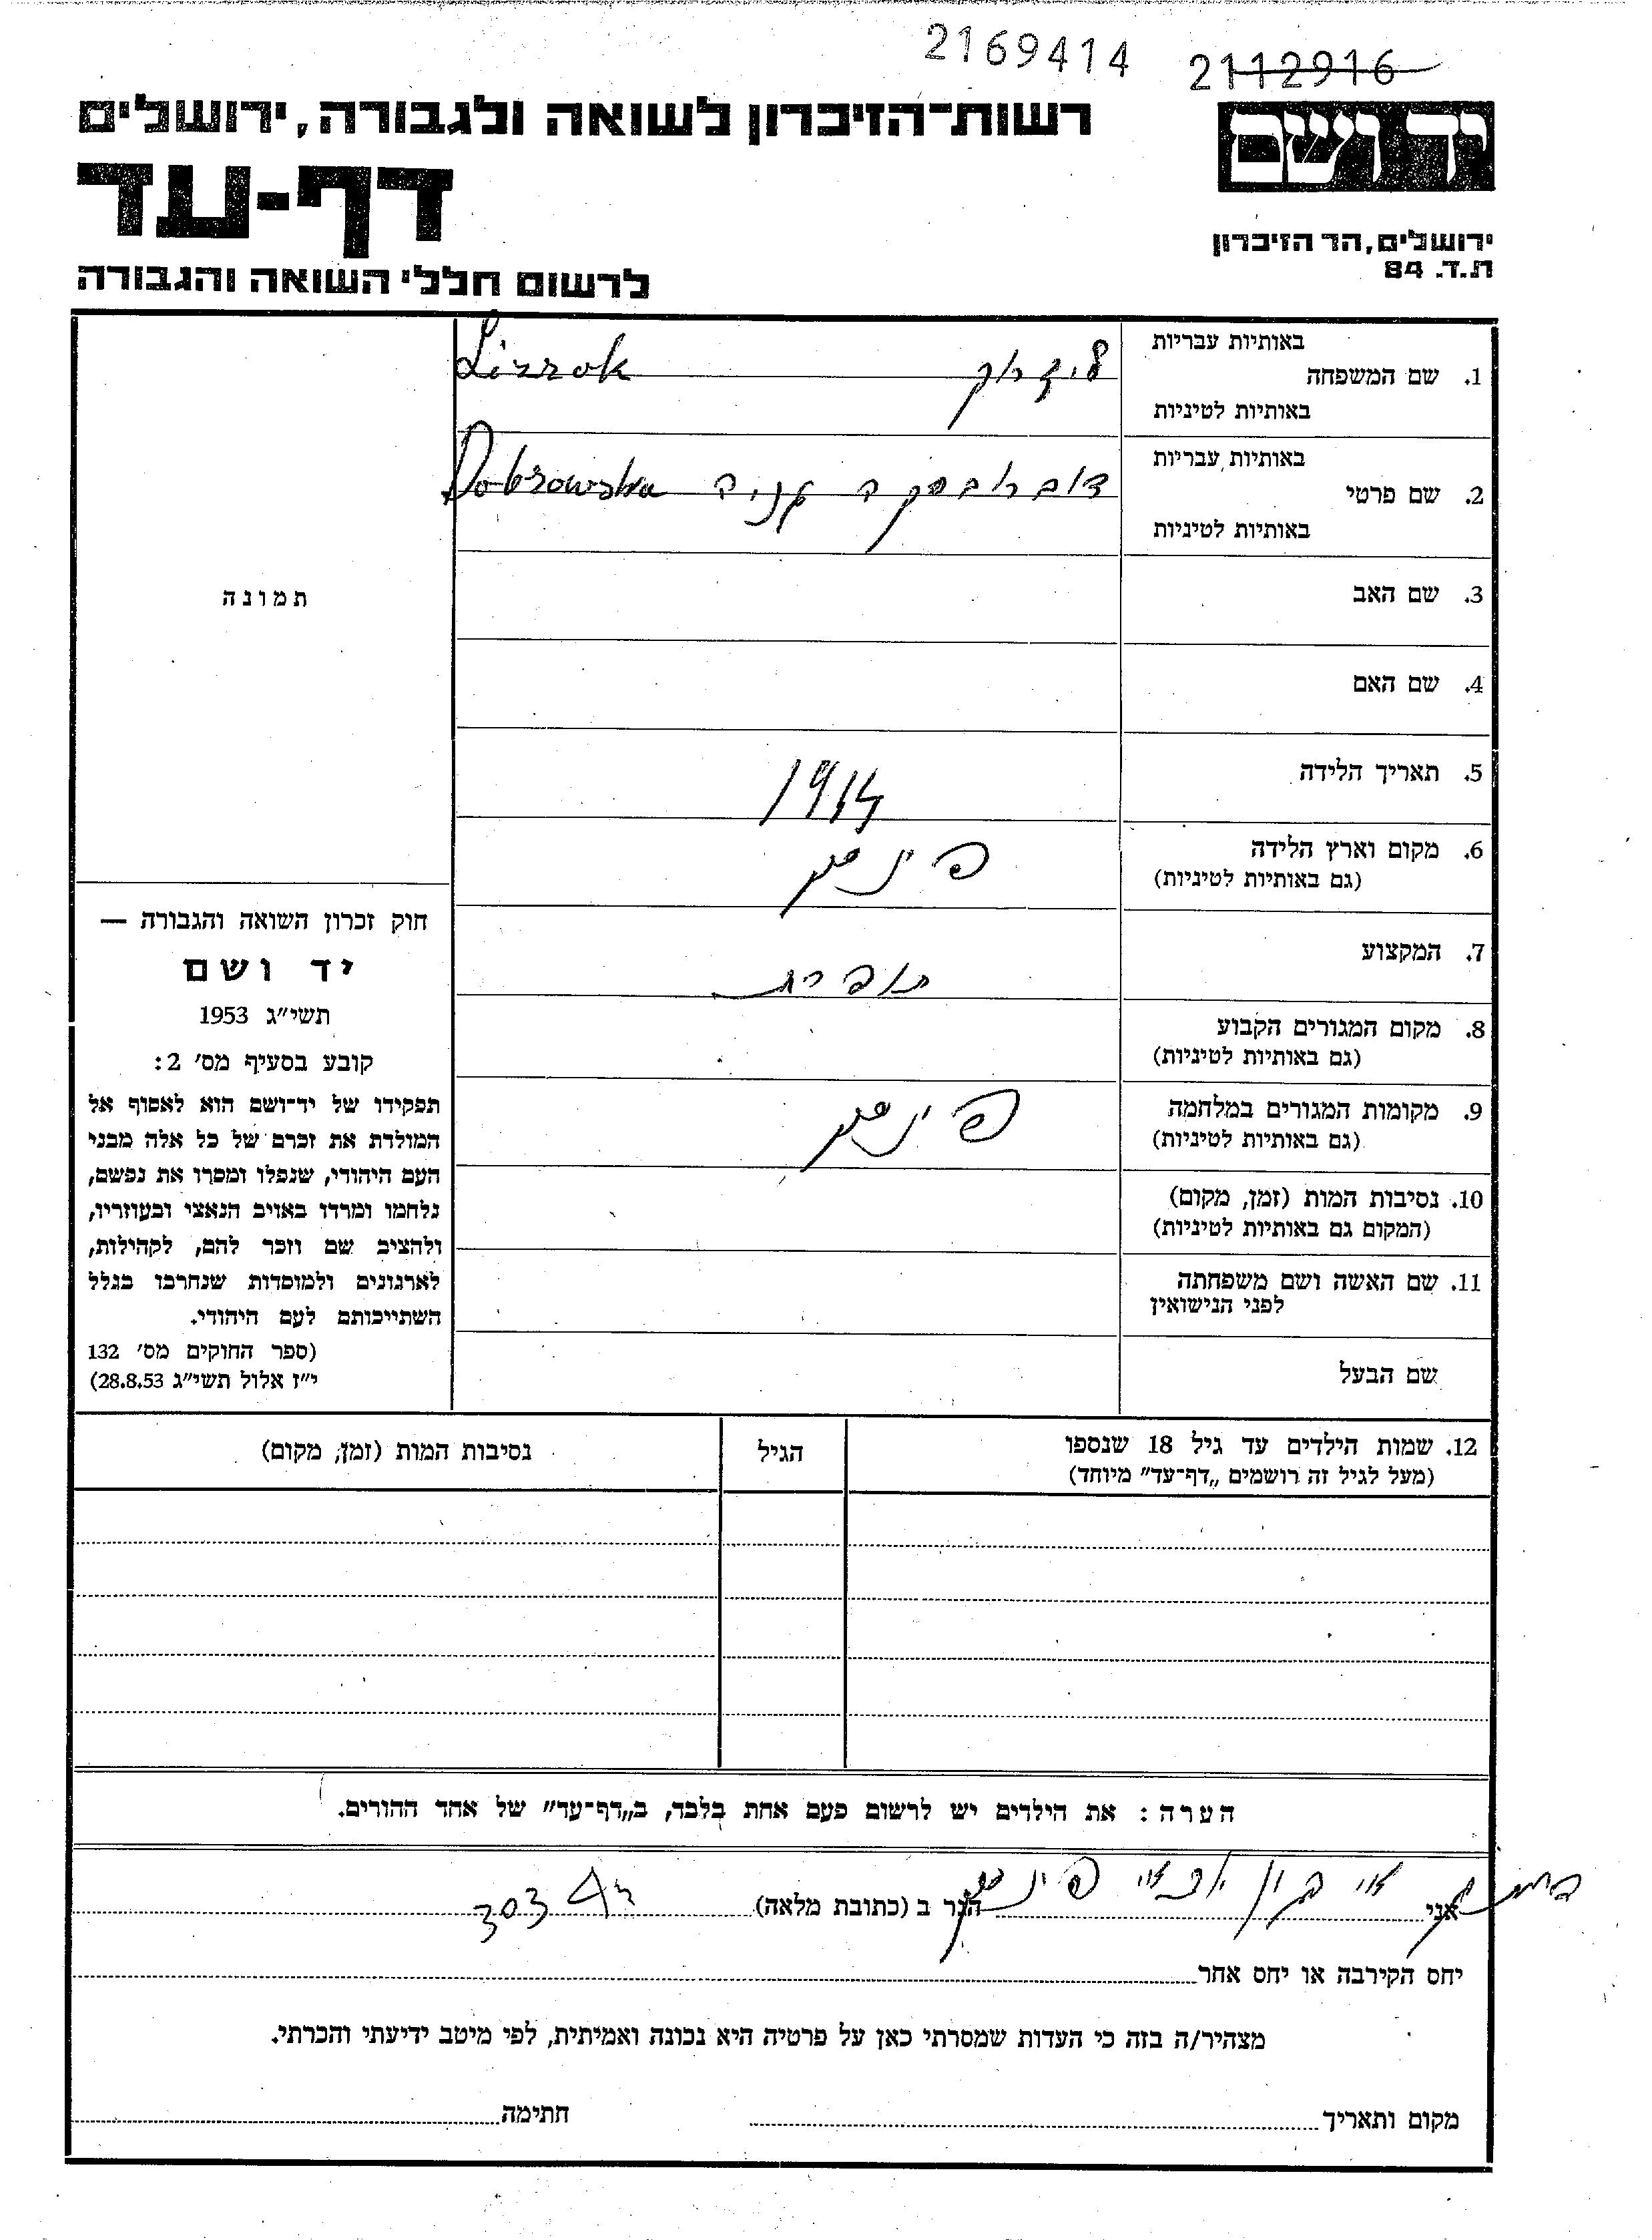 2169414 2112916
רשות-הזיכרון לשואה ולגבורה, ירושלים
יד ושם
דף-עד
ירושלים, הר הזיכרון
ת.ד. 84
לרשום חללי השואה והגבורה
באותיות עבריות
1. שם המשפחה
באותיות לטיניות
Lizrok
באותיות עבריות
2. שם פרטי
באותיות לטיניות
Dobrowska
3. שם האב
4. שם האם
5. תאריך הלידה 1914
6. מקום וארץ הלידה
(גם באותיות לטיניות)
פינסק
7. המקצוע
תופרת
8. מקום המגורים הקבוע
(גם באותיות לטיניות)
9. מקומות המגורים במלחמה
(גם באותיות לטיניות)
פינסק
10. נסיבות המות (זמן, מקום)
(המקום גם באותיות לטיניות)
11. שם האשה ושם משפחתה
לפני הנישואין
שם הבעל
תמונה
חוק זכרון השואה והגבורה —
יד ושם
תשי״ג 1953
קובע בסעיף מס׳ 2:
תפקידו של יד־ושם הוא לאסוף אל
המולדת את זכרם של כל אלה מבני
העם היהודי, שנפלו ומסרו את נפשם,
נלחמו ומרדו באויב הנאצי ובעוזריו,
ולהציב שם וזכר להם, לקהילות,
לארגונים ולמוסדות שנחרבו בגלל
השתייכותם לעם היהודי.
(ספר החוקים מס׳ 132
י״ז אלול תשי״ג 28.8.53)
12. שמות הילדים עד גיל 18 שנספו
(מעל לגיל זה רושמים „דף־עד״ מיוחד)
הגיל
נסיבות המות (זמן, מקום)
הערה: את הילדים יש לרשום פעם אחת בלבד, ב„דף־עד״ של אחד ההורים.
אני פינסק הגר ב (כתובת מלאה) 303
יחס הקירבה או יחס אחר
מצהיר/ה בזה כי העדות שמסרתי כאן על פרטיה היא נכונה ואמיתית, לפי מיטב ידיעתי והכרתי.
מקום ותאריך חתימה